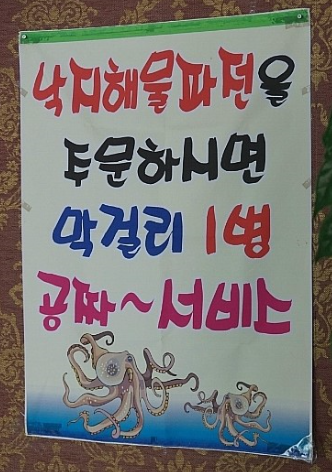 낙지해물파전을
주문하시면
막걸리 1병
공짜~서비스